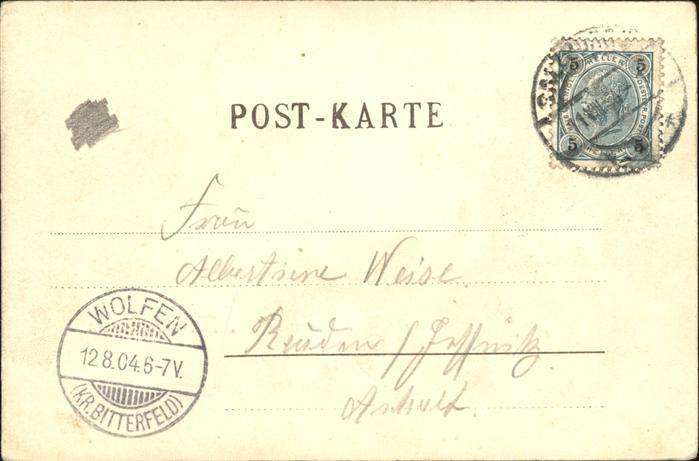 POST-KARTE
5 HELLER 5
5 5
Frau
Albertine Weise.
Reuden / Jeßnitz
Anhalt.
WOLFEN
12.8.04.6-7V.
(KR.BITTERFELD)